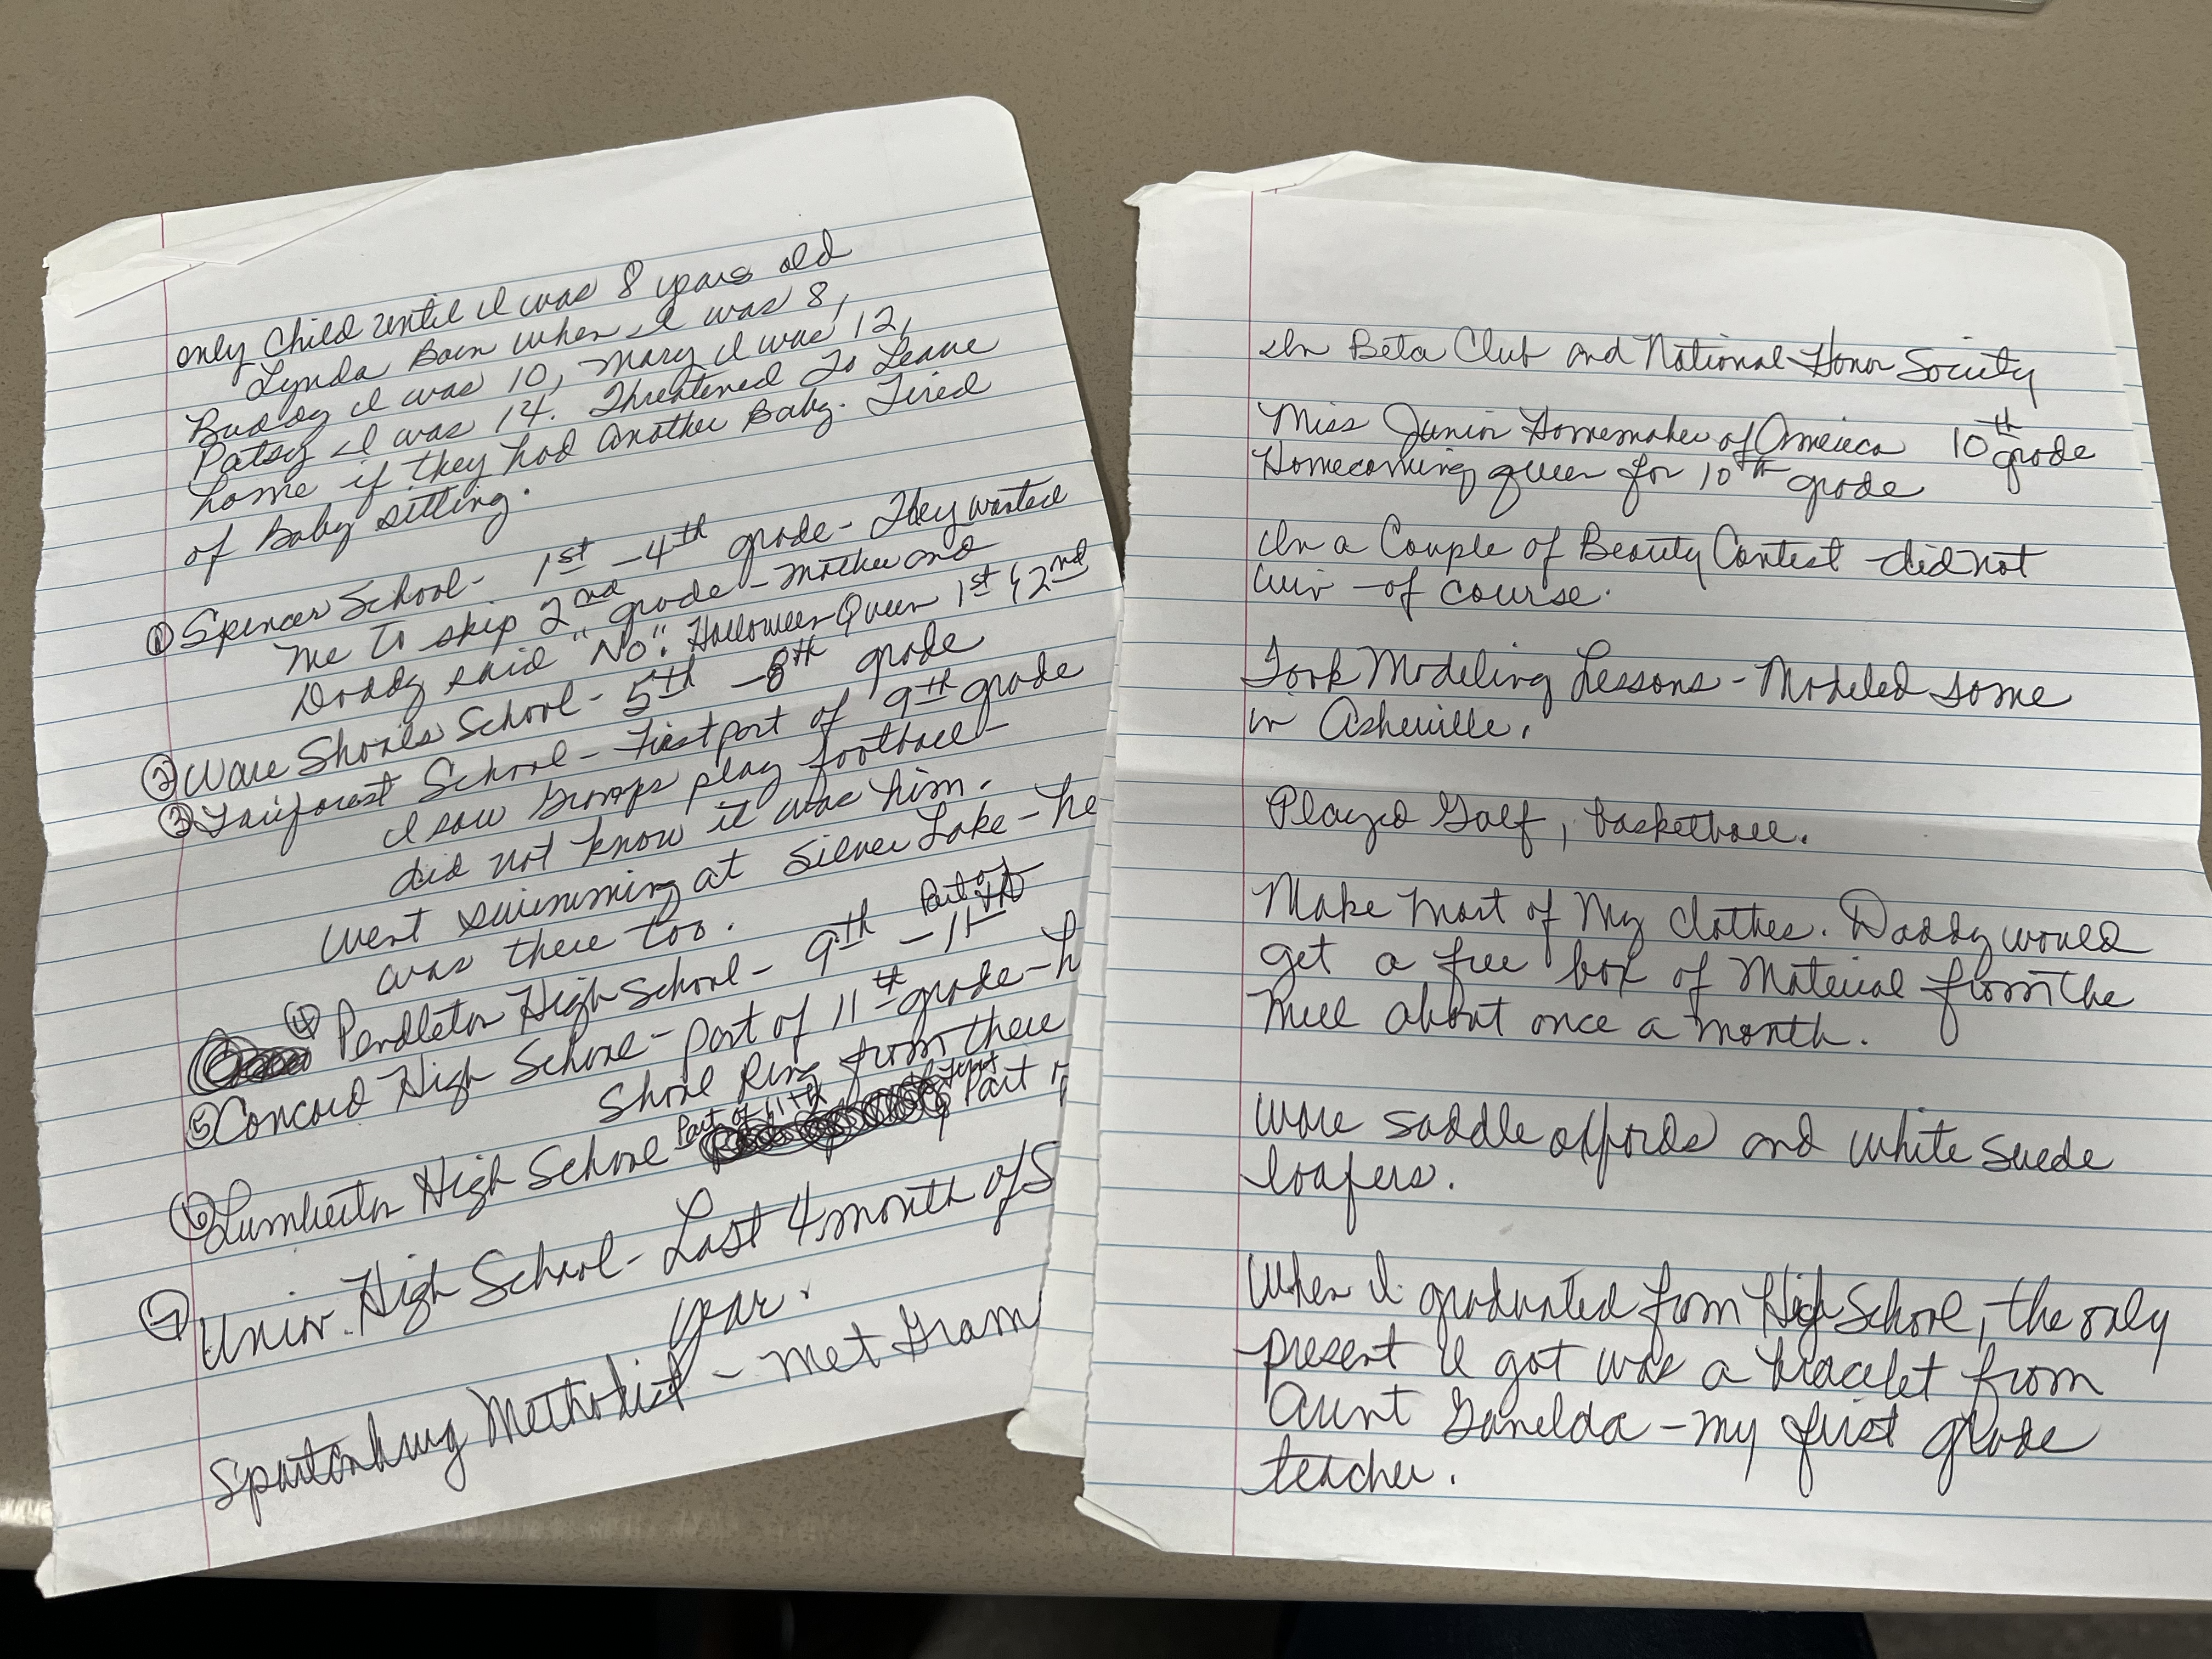 only Child until I was 8 years old
Lynda Born when I was 8,
Buddy I was 10, Mary I was 12,
Patsy I was 14. Threatened To Leave
home if they had another Baby. Tired
of Baby sitting.
① Spencer School - 1st - 4th grade - They wanted
me to skip 2nd grade - Mother and
Daddy said "No". Halloween Queen 1st & 2nd
② Ware Shoals School - 5th - 8th grade
③ Fairforest School - First part of 9th grade
I saw Gramps play football -
did not know it was him.
Went swimming at Silver Lake - he
was there too.
④ Pendleton High School - 9th - Part of 11th
⑤ Concord High School - part of 11th grade - h
School Ring from there
⑥ Lumberton High School - Part of 11th first Part
⑦ Union High School - Last 4 month of S
year.
Spartanburg Methodist - Met Gram
In Beta Club and National Honor Society
Miss Junior Homemaker of America 10th grade
Homecoming queen for 10th grade
In a Couple of Beauty Contest - did not
win - of course.
Took Modeling Lessons - Modeled some
in Asheville.
Played Golf, basketball.
Make most of My clothes. Daddy would
get a free box of Material from The
Mill about once a month.
Wore saddle oxfords and white suede
loafers.
When I graduated from High School, the only
present I got was a bracelet from
Aunt Ganelda - my first grade
teacher.